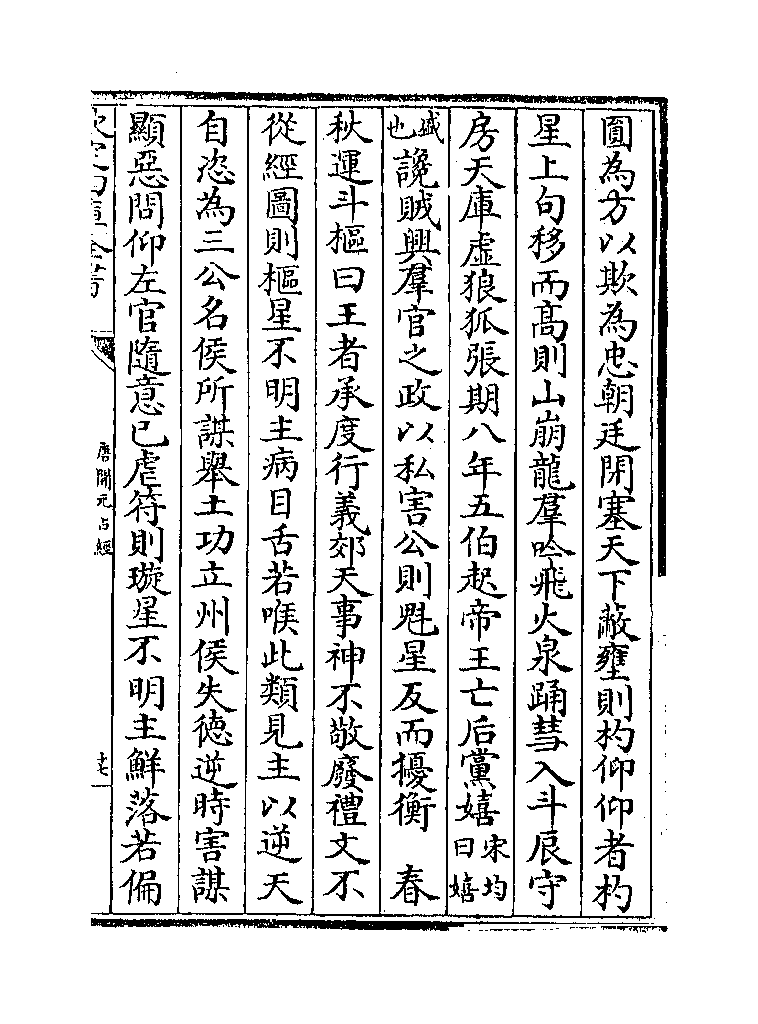 圓為方以欺為忠朝廷閉塞天下蔽壅則杓仰仰者杓
星上句移而髙則山崩龍羣吟飛火泉踊彗入斗辰守
房天庫虛狼狐張期八年五伯起帝王亡后黨嬉宋均曰嬉
盛也讒賊興羣官之政以私害公則魁星反而擾衡　春
秋運斗樞曰王者承度行義郊天事神不敬廢禮文不
從經圖則樞星不明主病目舌若喉此類見主以逆天
自恣為三公名侯所謀舉土功立州侯失德逆時害謀
顯惡問仰左官隨意已虐符則璇星不明主鮮落若偏
欽定四庫全書
唐開元占經